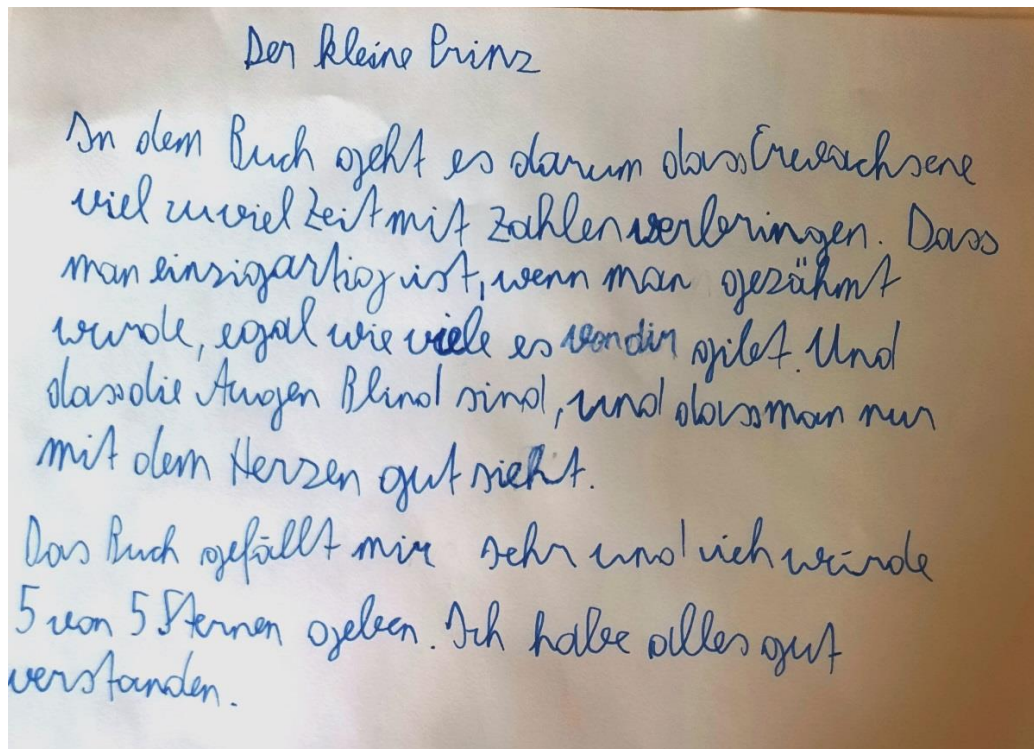 Der kleine Prinz
In dem Buch geht es darum dass Erwachsene
viel zu viel Zeit mit Zahlen verbringen. Dass
man einzigartig ist, wenn man gezähmt
wurde, egal wie viele es von dir gibt. Und
dass die Augen Blind sind, und dass man nur
mit dem Herzen gut sieht.
Das Buch gefällt mir sehr und ich würde
5 von 5 Sternen geben. Ich habe alles gut
verstanden.